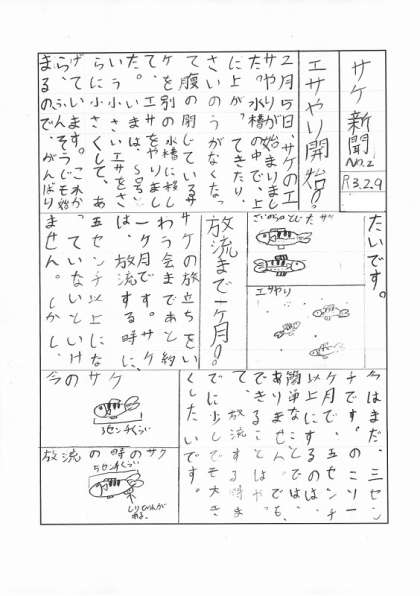 サケ新聞
No.2
R3.2.9
エサやり開始。
2月5日、サケのエ
サやりが始まりまし
た。水槽の中で、上
に上が、てきたり、
さいのうがなくなっ
て腹の閉じているサ
ケを別の水槽に移し
て、エサをやりまし
た。いまは、S号、と
いう小さいエサをさ
らに小さくして、あ
げています。これか
ら、ふんそうじも始
まるので、がんばり
たいです。
さいのうのとじたサケ
エサやり
放流まで一ケ月。
サケの旅立ちをい
わう会まであと約
一ケ月です。サケ
は、放流する時に、
五センチ以上にな
っていないといけ
ません。しかし、
今はまだ、三セン
チです。のこり一
ケ月で、五センチ
以上にするのは、
簡単なことでは、
ありません。でも、
できることはや、
て、放流する時ま
でに少しでも大き
くしたいです。
今のサケ
3センチくらい
放流の時のサケ
5センチくらい
しりびれが
ある。